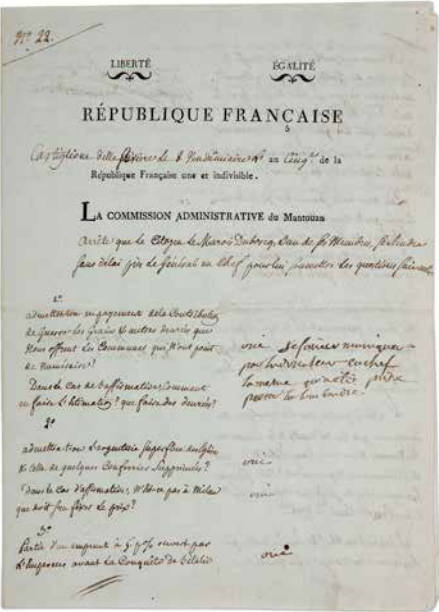 Nº 22.
LIBERTÉ ÉGALITÉ
RÉPUBLIQUE FRANÇAISE
Castiglione delle le 8 Vendémiaire an Cinq.e de la
République Française une et indivisible.
LA COMMISSION ADMINISTRATIVE du Mantouan
arrête que le Citoyen le l'un de Membres, se rendra
sans délai près le Général en Chef pour lui soumettre les questions suivantes
1º
admettra-t-on en payement de la Contribution
de Guerre les Grains & autres denrées que
Nous offrent les Communes qui n'ont point
de Numéraire?
oui se faire
pour le en chef
la même
pour la lombardie
Dans le Cas de l'affirmative, Comment
en faire l'Estimation? que faire des denrées?
2º
admettra-t-on l'argenterie superflue des Eglises
& Celle de quelques Confréries Supprimées?
oui
dans le Cas d'affirmative, N'est-ce pas à Milan
que doit être fixé le prix?
oui
3º
Partie d'un emprunt à 5 p% ouvert par
l'Empereur avant la Conquête de l'italie
oui